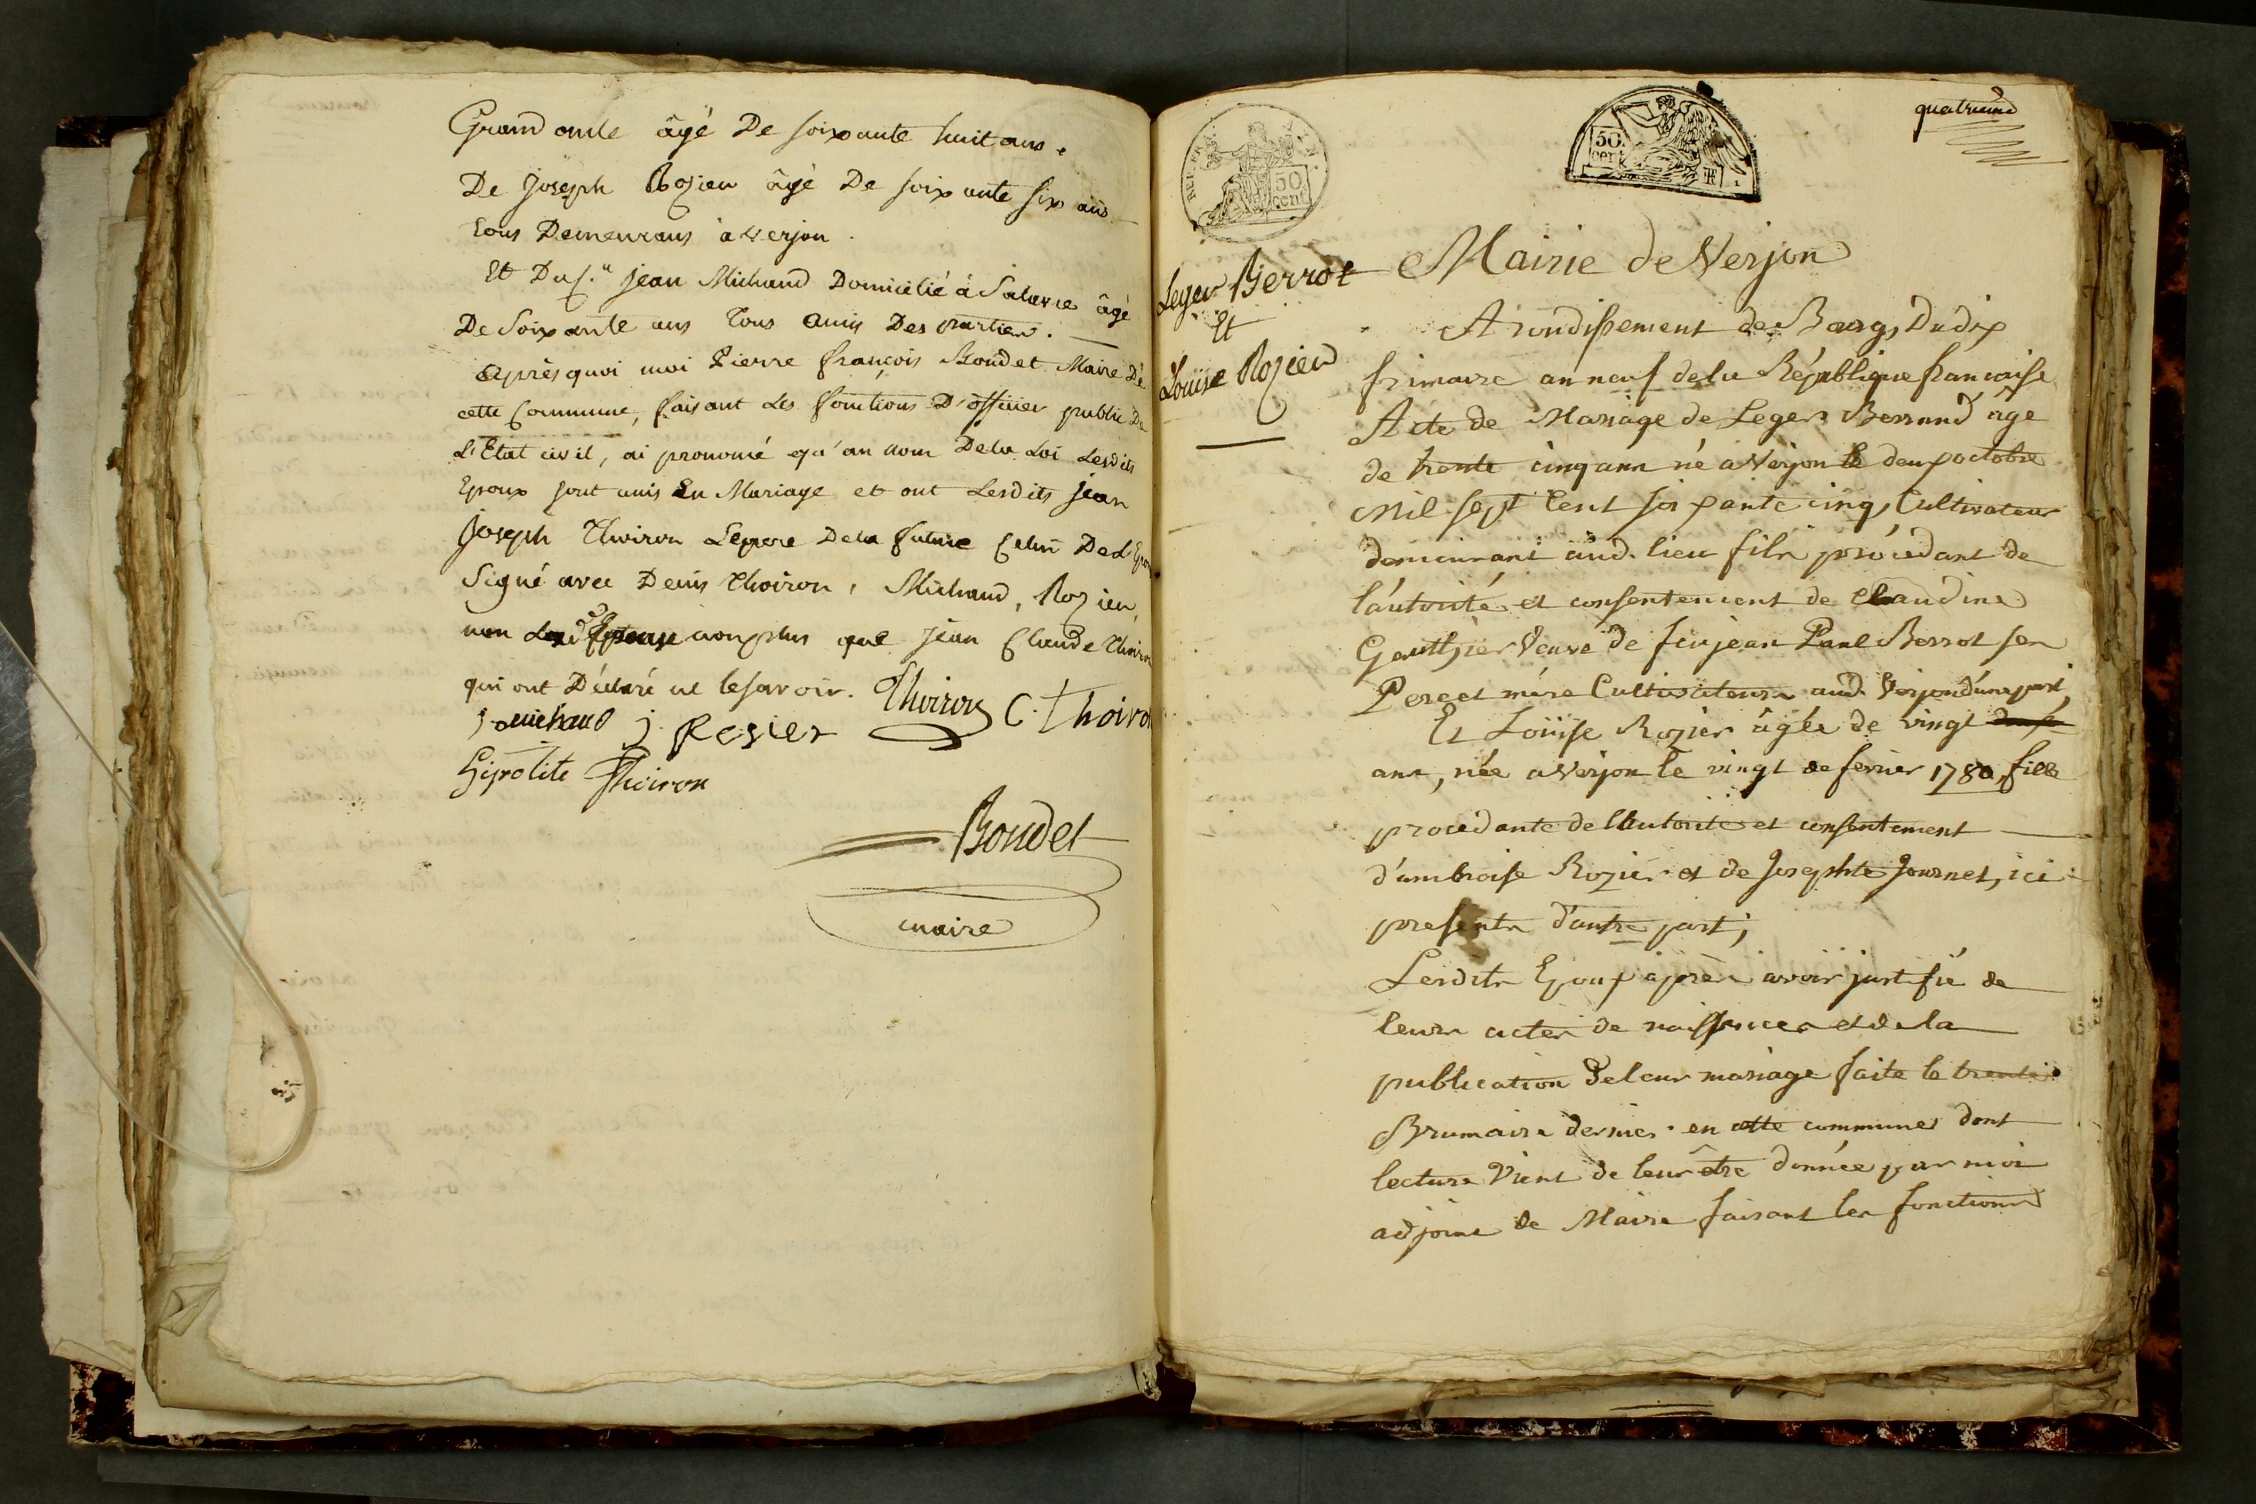 Grand oncle âgé De soixante huit ans.
De Joseph Rozier âgé De soixante six ans
tous Demeurans à Verjon.
Et Du s.r Jean Michaud Domicilié à Salavre âgé
De Soixante ans Tous Amis Des parties.
Après quoi moi Pierre françois Boudet Maire De
cette Commune, faisant les fonctions D'officier public De
L'Etat civil, ai prononcé qu'au nom De la Loi Lesdits
Epoux sont unis En Mariage et ont Lesdits Jean
Joseph Thoiron Le pere De la future Celui De L'Epoux
Signé avec Denis Thoiron, Michaud, Rozier
non Lesd. Epoux non plus que Jean Claude Thoiron
qui ont Déclaré ne le savoir. Thoiron C. Thoiron
J. Michaud j. Rosier
hipolite Thoiron
Boudet
maire
REP. FRA.
50
cent
50
cent
quatrieme
Leger Berrot
Et
Louise Rozier
Mairie de Verjon
Arondissement de Bourg, Du dix
frimaire an neuf de la République francaise
Acte de Mariage de Leger Berraud âgé
de trente cinq ans né a Verjon le deux octobre
Mil sept Cent soixante cinq, Cultivateur
demeurant aud. lieu fils procedant de
l'autorité et consentement de Claudine
Gauthier Veuve de feu jean Paul Berrot ses
Pere et mère Cultivateurs aud. Verjon d'une part,
Et Louïse Rozier âgée de vingt
ans, née a Verjon le vingt de fevrier 1780, fille
procedante de l'Autorité et consentement
d'ambroise Rozier et de Josephte Journet, ici
presents d'autre part;
Lesdits Epoux après avoir justifié de
leurs actes de naissances et de la
publication de leur mariage faite le trente
Brumaire dernier en cette commune dont
lecture Vient de leur être donnée par moi
adjoint de Maire faisant les fonctions